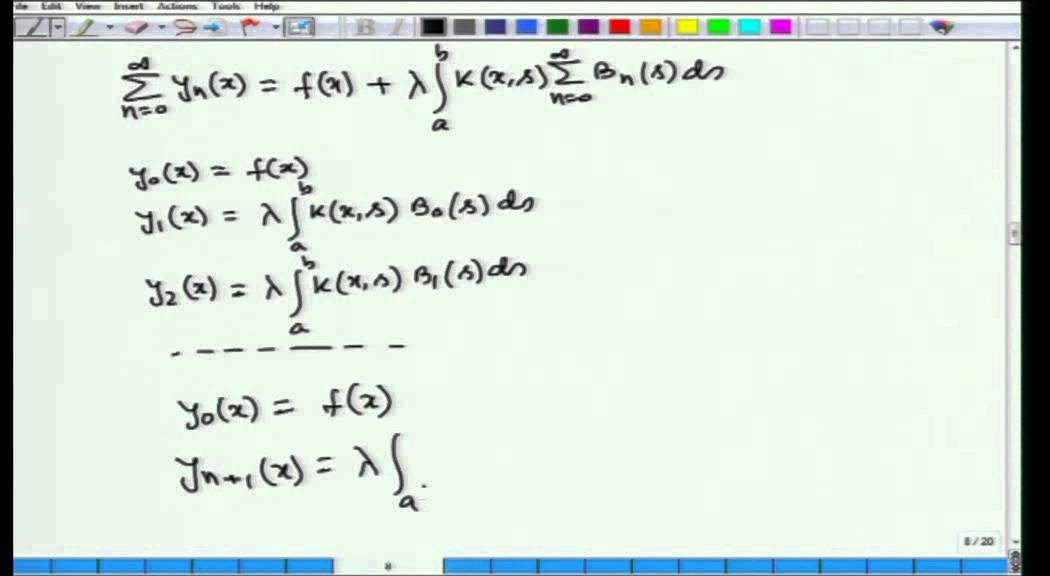 File Edit View Insert Actions Tools Help
∑_{n=0}^{∞} y_n(x) = f(x) + λ ∫_a^b K(x,s) ∑_{n=0}^{∞} B_n(s) ds
y_0(x) = f(x)
y_1(x) = λ ∫_a^b K(x,s) B_0(s) ds
y_2(x) = λ ∫_a^b K(x,s) B_1(s) ds
y_0(x) = f(x)
y_{n+1}(x) = λ ∫_a
8/20
8